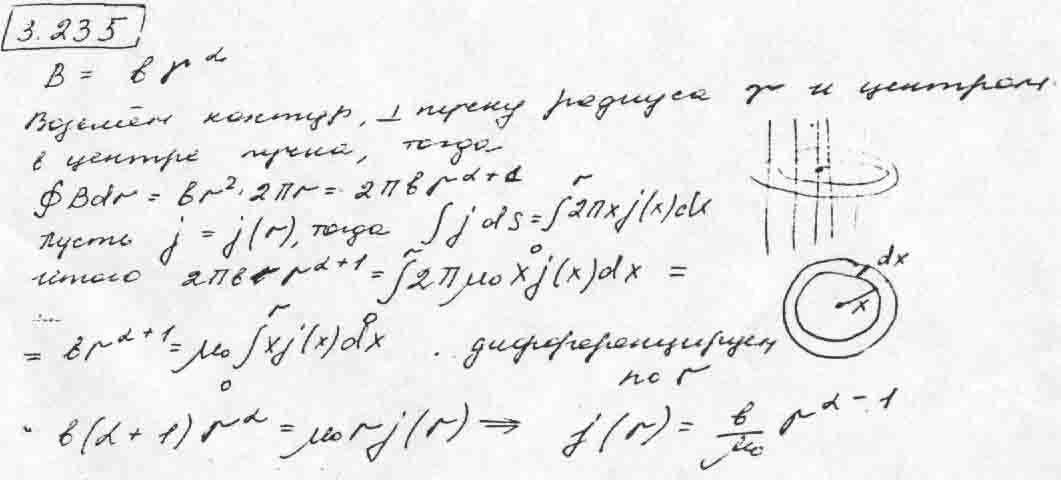 3.235
B = b r^α
Возьмём контур, ⊥ пучку радиуса r и центром
в центре пучка, тогда
∮Bdr = br^2 · 2πr = 2πbr^{α+1}
Пусть j = j(r), тогда ∫j dS = ∫_0^r 2πxj(x)dx
итого 2πb r^{α+1} = ∫_0^r 2πμ₀ x j(x)dx =
= br^{α+1} = μ₀ ∫_0^r xj(x)dx . дифференцируем
по r
b(α+1) r^α = μ₀rj(r) ⇒ j(r) = b/μ₀ r^{α-1}
dx
x